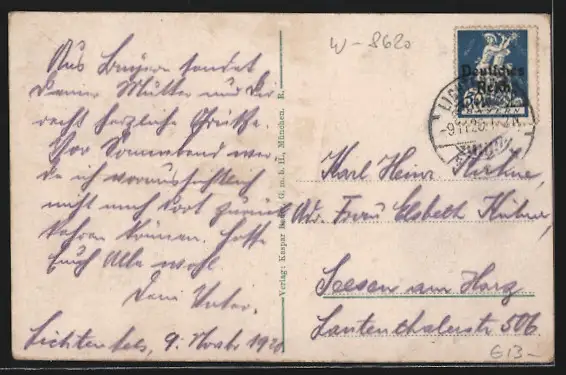 Aus Bayern sendet
Deiner Mutter und Dir
recht herzliche Grüße.
Vor Sonnabend wer
de ich voraussichtlich
nicht nach dort zurück
kehren können. Hoffe
Euch Alle wohl.
Dein Vater.
Lichtenfels, 9. Novbr 1920
Verlag: Kaspar G. m. b. H., München. R.
W-8620
Deutsches
Reich
Karl Heinz Kühne,
Adr. Frau Elsbeth Kühne,
Seesen am Harz
Lautenthalerstr 506
E13-